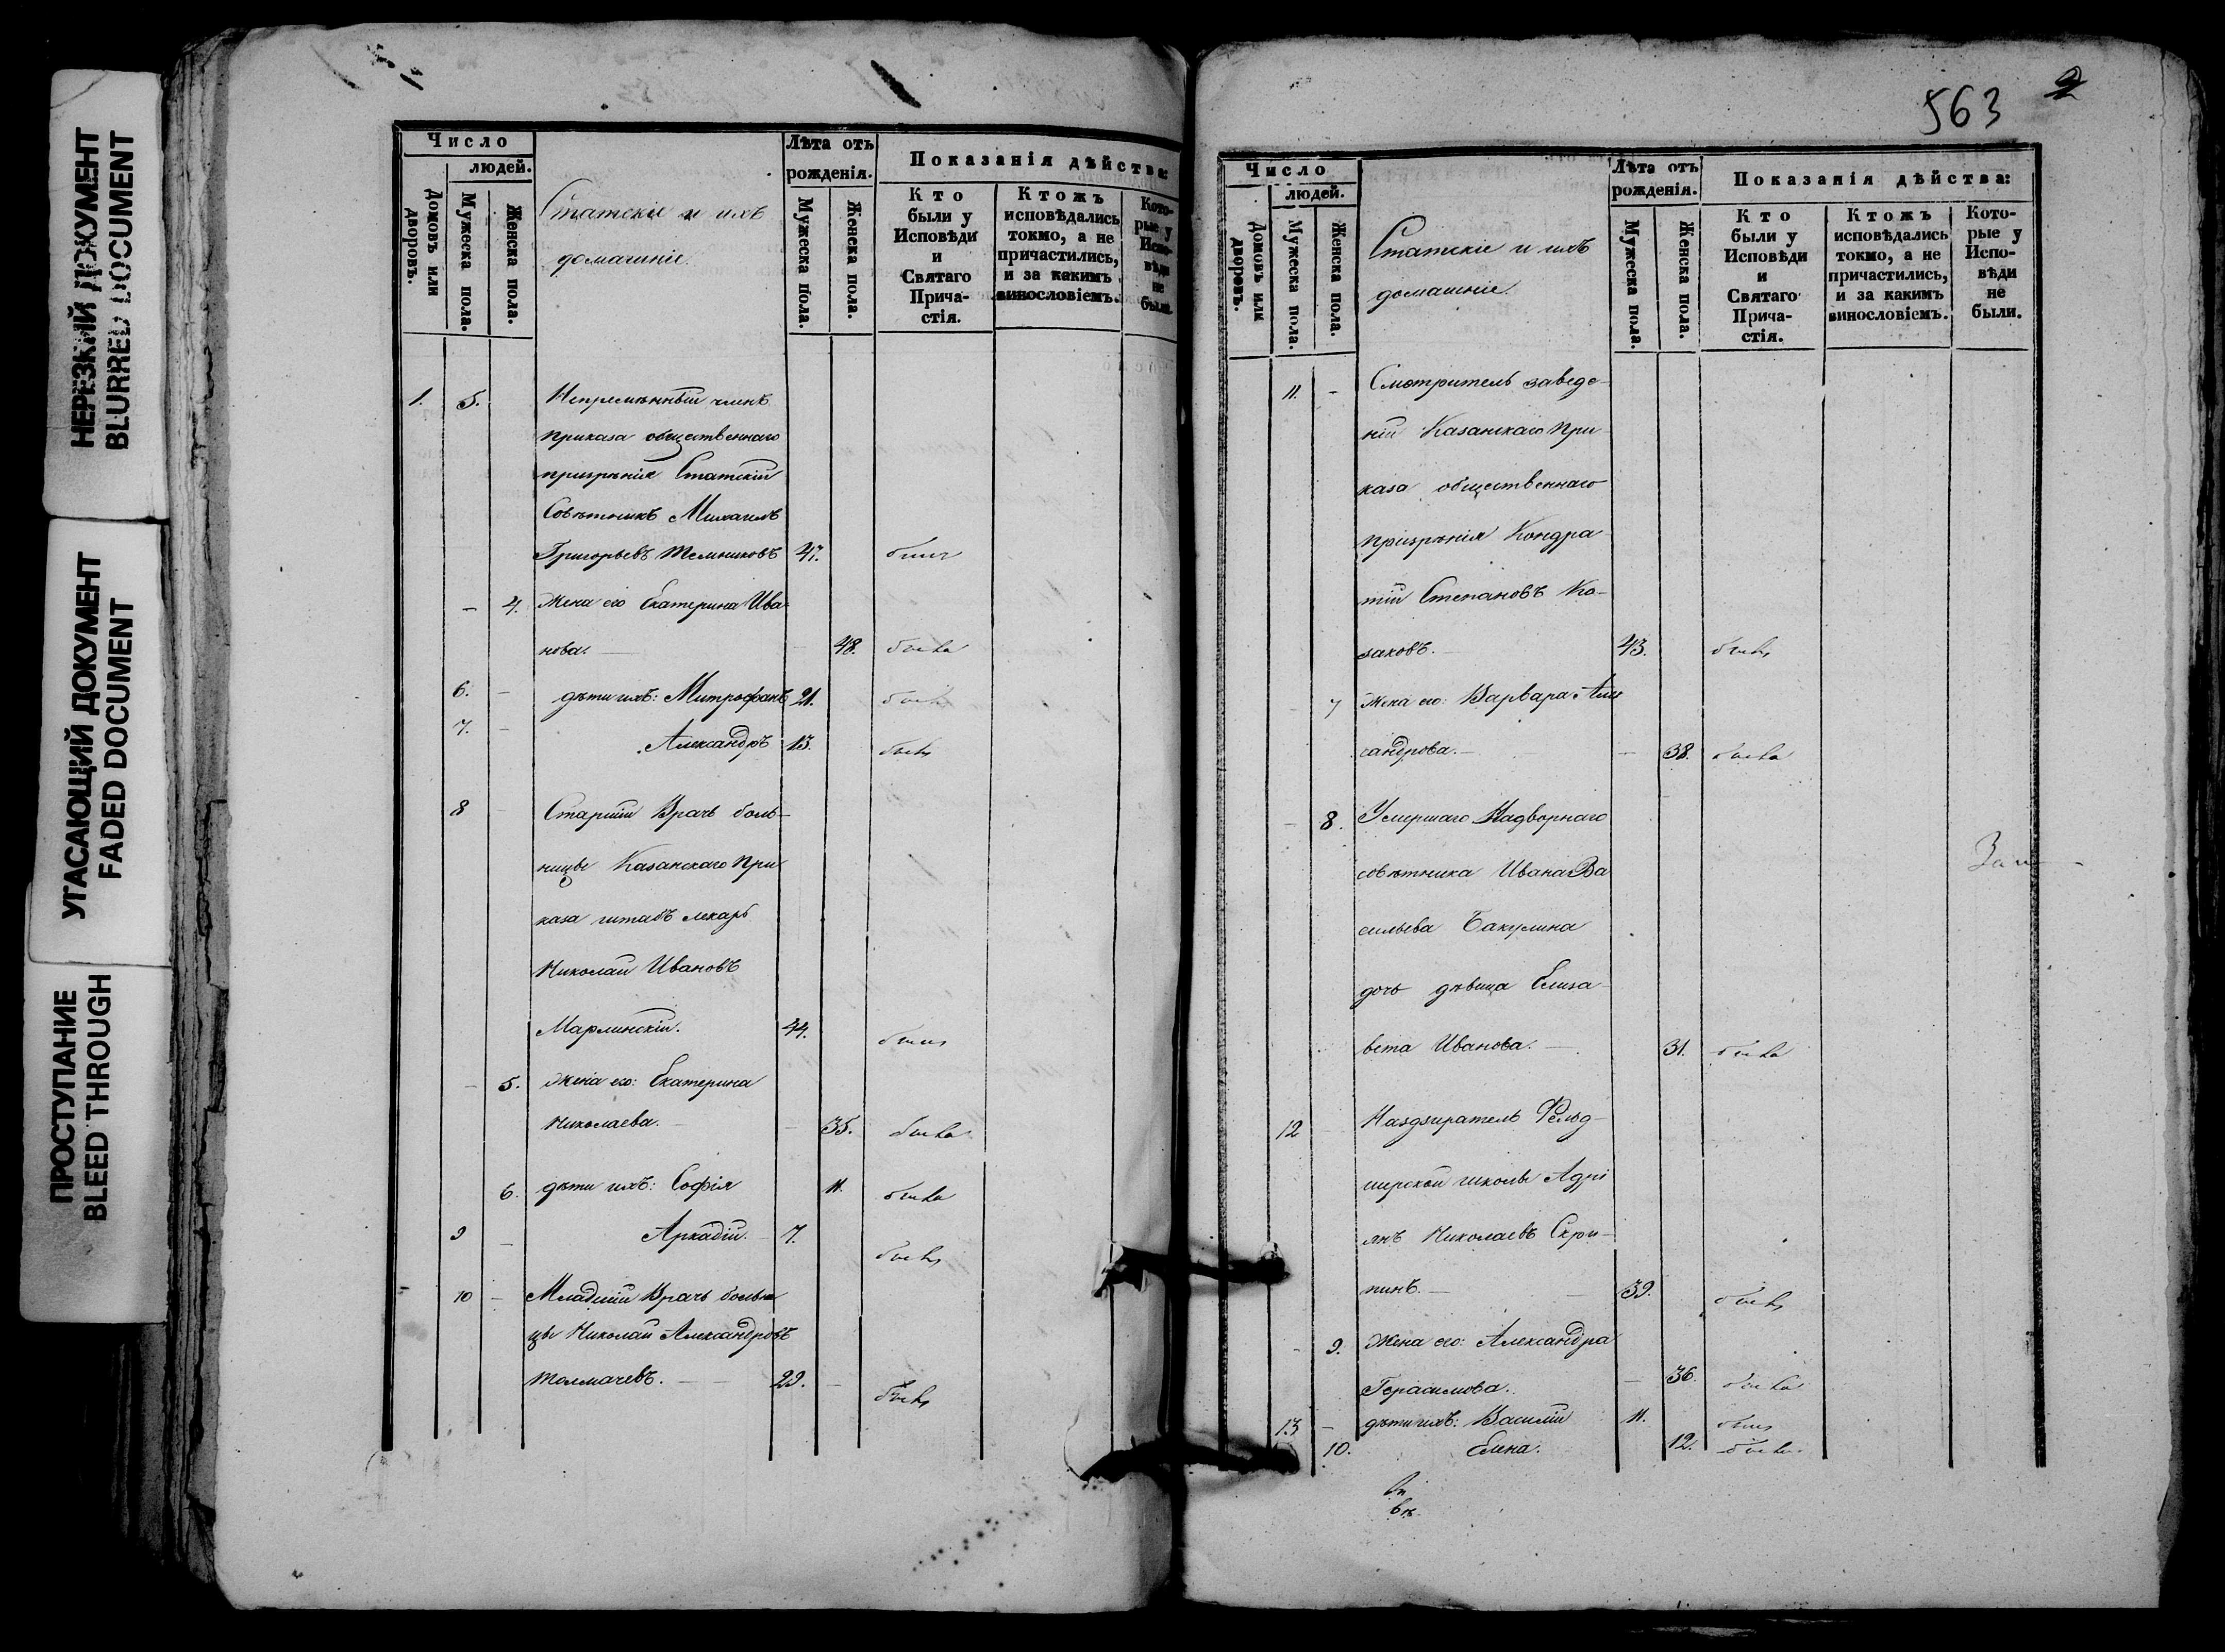 НЕРЕЗКИЙ ДОКУМЕНТ
BLURRED DOCUMENT
УГАСАЮЩИЙ ДОКУМЕНТ
FADED DOCUMENT
ПРОСТУПАНИЕ
BLEED THROUGH
Число
людей.
Домовъ или дворовъ.
Мужеска пола.
Женска пола.
Статскіе и ихъ
домашніе.
Лѣта отъ
рожденія.
Мужеска пола.
Женска пола.
Показанія дѣйства:
Кто
были у
Исповѣди
и
Святаго
Прича-
стія.
Ктожъ
исповѣдались
токмо, а не
причастились,
и за какимъ
винословіемъ.
Кото-
рые у
Испо-
вѣди
не
были.
1. 5. Непремѣнный членъ
приказа общественнаго
призрѣнія Статскій
Совѣтникъ Михаилъ
Григорьевъ Темниковъ 47. былъ
- 4. Жена его Екатерина Ива-
нова. 48. была
6. - дѣти ихъ: Митрофанъ 21. былъ
7. - Александръ 13. былъ
8 Старшій Врачь боль-
ницы Казанскаго При
каза штабъ лекарь
Николай Ивановъ
Марлинскій. 44. былъ
- 5. Жена его: Екатерина
Николаева. 35. была
6. дѣти ихъ: Софія 11. была
9 - Аркадій. 7. былъ
10 - Младшій Врачь больни
цы Николай Александровъ
Толмачевъ. 29. былъ
563 2
Число
людей.
Домовъ или дворовъ.
Мужеска пола.
Женска пола.
Статскіе и ихъ
домашніе.
Лѣта отъ
рожденія.
Мужеска пола.
Женска пола.
Показанія дѣйства:
Кто
были у
Исповѣди
и
Святаго
Прича-
стія.
Ктожъ
исповѣдались
токмо, а не
причастились,
и за какимъ
винословіемъ.
Кото-
рые у
Испо-
вѣди
не
были.
11. - Смотритель заведе-
ній Казанскаго При-
каза общественнаго
призрѣнія Кондра-
тій Степановъ Ко-
заковъ. 43. былъ
7 Жена его: Варвара Алек
сандрова. 38. была
- 8. Умершаго Надворнаго
совѣтника Ивана Ва
сильева Бакулина
дочь дѣвица Елиза-
вета Иванова. 31. была
12 Надзиратель Фельд-
шерской школы Адрі
янъ Николаевъ Скри-
пинъ. 39. былъ
- 9. Жена его: Александра
Герасимова. 36. была
13 - дѣти ихъ: Василій 11. былъ
10. Елена. 12. была